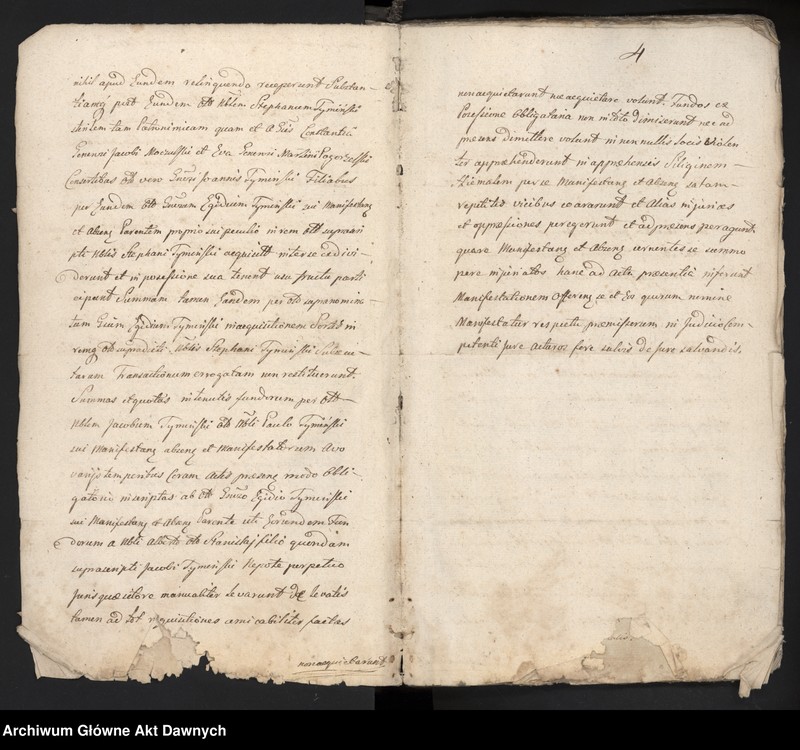 nihil apud Eundem relinquendo receperunt Substan-
tiamq per Eundem olim Nblem Stephanum Tymiński
Constantia
Generosi Jacobi et Eva Generosi Martini
Consortibus olim vero Gnosi Joannis Tyminski Filiabus
per Eundem olim Gnosum Egidium Tyminski sui Manifestanq
et Absenq Parentem proprio sui peculio in rem olim suprascri
pti Nblis Stephani Tyminski acquisitt inter se condivi-
derunt et in possessione sua tenent usu fructu parti
cipant Summam tamen Eandem per olim supranomina-
tum Gnosum Egidium Tyminski in acquisitionem Sortis in
remq olim supradicti Nblis Stephani Tyminski
tarum Transactionum errogatam non restituerunt.
Summas et quotas in tenutis fundorum per olim
Nblem Jacobum Tyminski olim Nbli Paulo Tyminski
sui Manifestanq absenq et Manifestatorum Avo
varijs temporibus Coram Actis praesenq modo Obli-
gatorio inscriptas ab olim Gnoso Egidio Tyminski
sui Manifestanq et Absenq Parente uti Eorundem Fun
dorum a Nbli Alberto olim Stanislai filio quondam
suprascripti Jacobi Tyminski Nepote perpetuo
Juris quaesitore manualiter levarunt & levatis
tamen ad tot requisitiones amicabiliter factas
non acquietarunt
4
non acquietarunt nec acquietare volunt. Fundos ex
Possessione Obligatoria non dimiserunt nec ad
praesens dimittere volunt in nonnullis Locis Violen
ter apprehenderunt in apprehensis Siliginem
Hiemalem per se Manifestanq et Absenq satam
repetitis vicibus coararunt et Alias injurias
et oppressiones peregerunt et ad praesens peragunt.
quare Manifestanq et Absenq cernentes se summo
pere injuriatos hanc ad Acta praesentia inferunt
Manifestationem Offerenq se et Eo quorum nomine
Manifestatur respectu praemissorum in Judicio Com-
petenti Jure acturos fore salvis de Jure salvandis.
Archiwum Główne Akt Dawnych